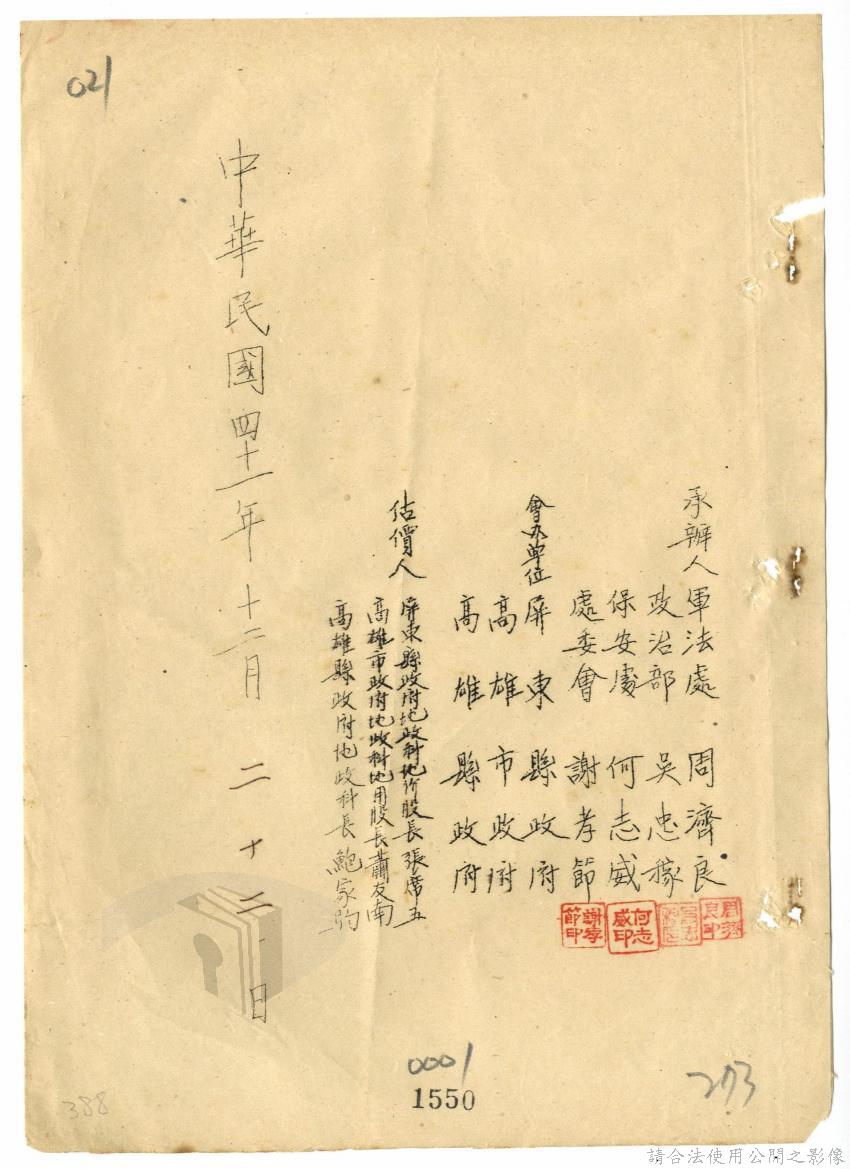 021
承辦人 軍法處 周濟良
政治部 吳忠稼
保安處 何志威
處委會 謝孝節
會办單位 屏東縣政府
高雄市政府
高雄縣政府
估價人 屏東縣政府地政科地价股長 張席五
高雄市政府地政科地用股長 蕭友南
高雄縣政府地政科長 鮑家駒
中華民國四十一年十二月二十二日
周濟良印
何志威印
謝孝節印
0001
1550
273
388
請合法使用公開之影像